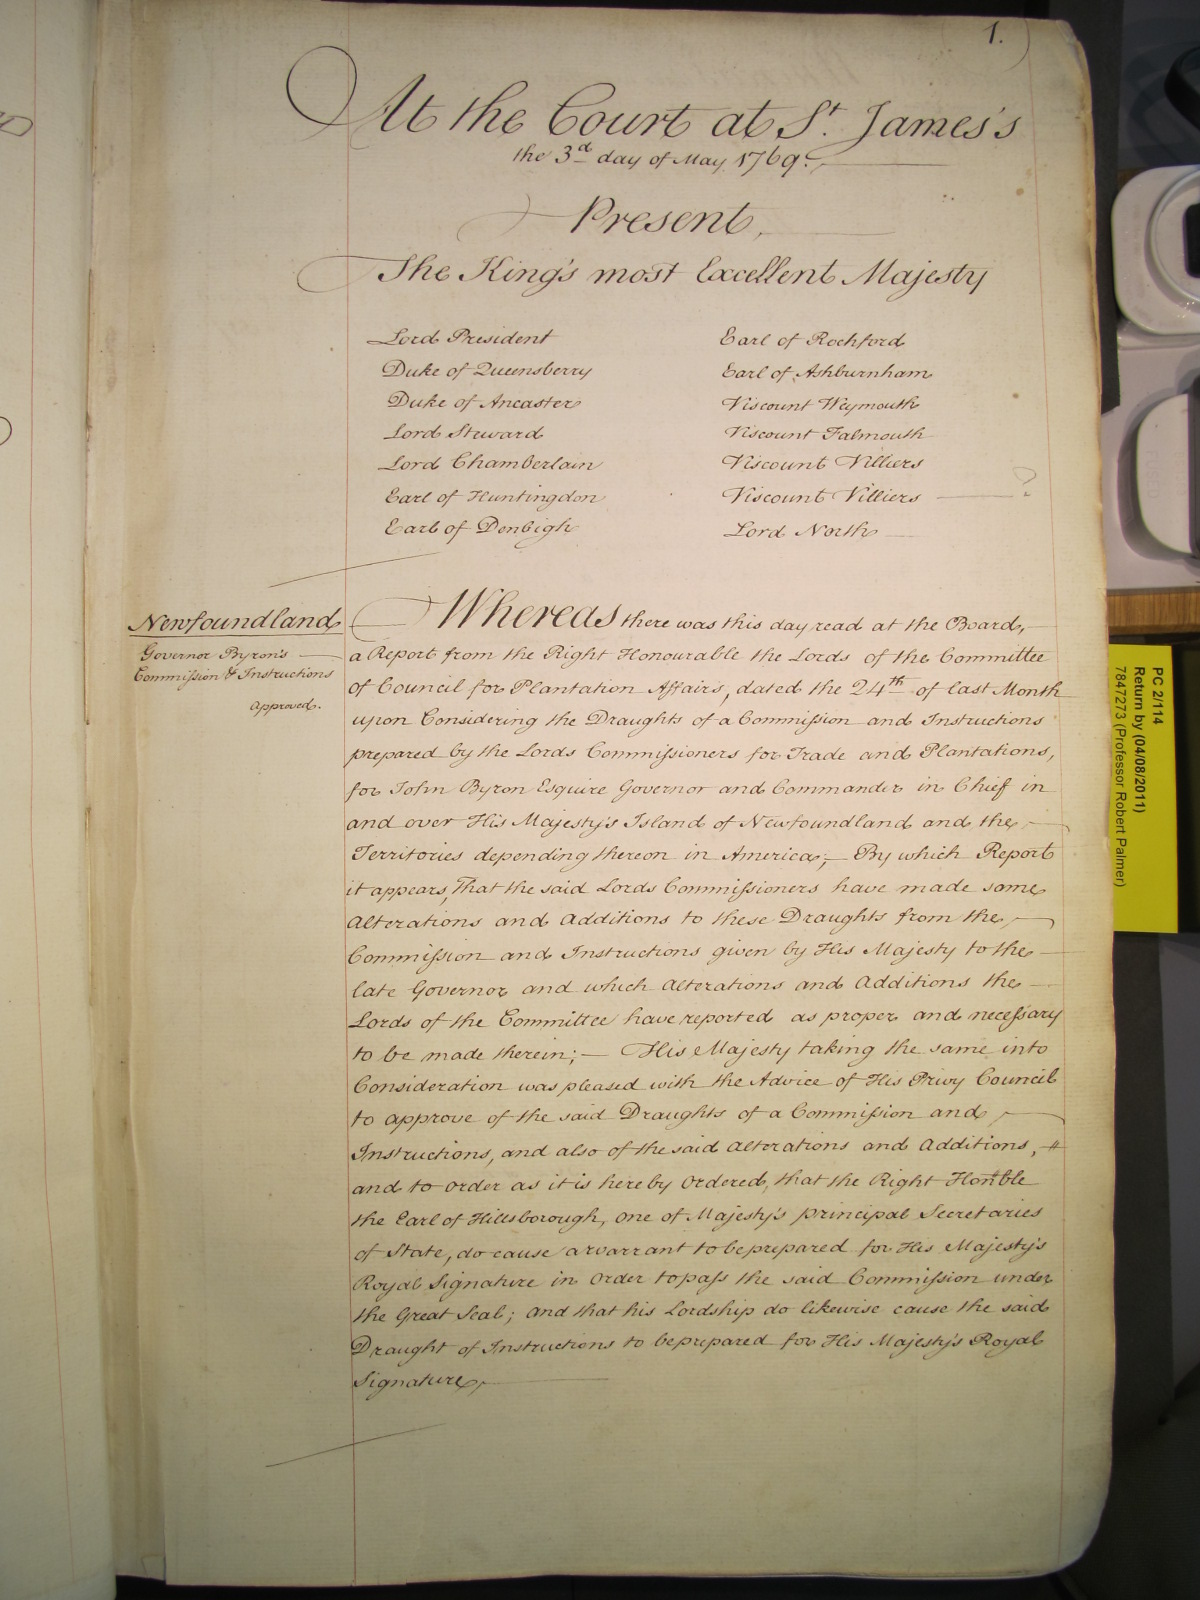 1.
At the Court at St. James's
the 3d day of May 1769.
Present,
The King's most Excellent Majesty
Lord President
Duke of Queensberry
Duke of Ancaster
Lord Steward
Lord Chamberlain
Earl of Huntingdon
Earl of Denbigh
Earl of Rochford
Earl of Ashburnham
Viscount Weymouth
Viscount Falmouth
Viscount Villiers
Viscount Villiers ?
Lord North
Newfoundland
Governor Byron's
Commission & Instructions
approved.
Whereas there was this day read at the Board,
a Report from the Right Honourable the Lords of the Committee
of Council for Plantation Affairs, dated the 24th of last Month
upon Considering the Draughts of a Commission and Instructions
prepared by the Lords Commissioners for Trade and Plantations,
for John Byron Esquire Governor and Commander in Chief in
and over His Majesty's Island of Newfoundland and the
Territories depending thereon in America; — By which Report
it appears, That the said Lords Commissioners have made some
Alterations and Additions to these Draughts from the
Commission and Instructions given by His Majesty to the
late Governor and which Alterations and Additions the
Lords of the Committee have reported as proper and necessary
to be made therein; — His Majesty taking the same into
Consideration was pleased with the Advice of His Privy Council
to approve of the said Draughts of a Commission and
Instructions, and also of the said Alterations and Additions,
and to order as it is hereby Ordered, that the Right Honble
the Earl of Hillsborough, one of Majesty's principal Secretaries
of State, do cause a warrant to be prepared for His Majesty's
Royal Signature in Order to pass the said Commission under
the Great Seal; and that his Lordship do likewise cause the said
Draught of Instructions to be prepared for His Majesty's Royal
Signature,
PC 2/114
Return by (04/08/2011)
7847273 (Professor Robert Palmer)